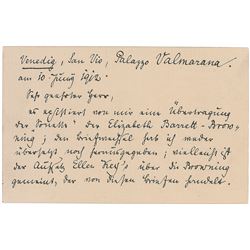 Venedig, San Vio, Palazzo Valmarana.
am 10 Juny 1912.
Sehr geehrter Herr,
es existiert von mir eine Übertragung
der "Sonette" der Elizabeth Barrett-Brow=
ning; den Briefwechsel hab ich weder
übersetzt noch herausgegeben; vielleicht ist
der Aufsatz Ellen Key's über die Browning
gemeint, der von diesen Briefen handelt.